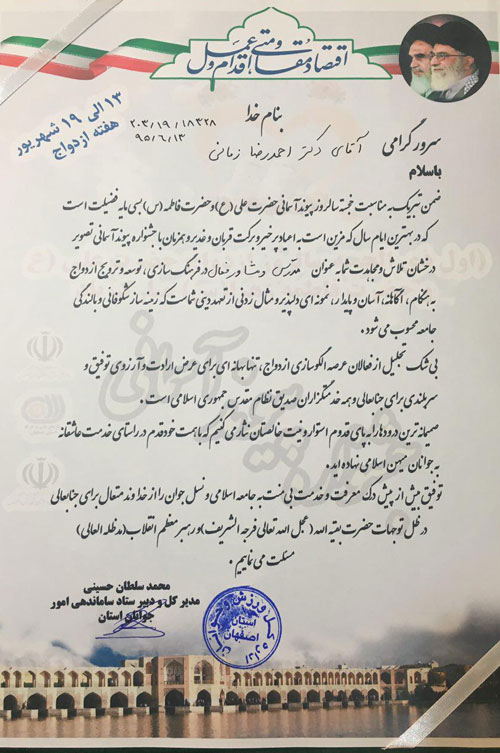 اقتصاد مقاومتی، اقدام و عمل
۱۳ الی ۱۹ شهریور
هفته ازدواج
بنام خدا
۲۰۳/۱۹/۱۸۳۲۸
۹۵/۶/۱۳
سرور گرامی آقای دکتر احمدرضا زمانی
باسلام
ضمن تبریک به مناسبت خجسته سالروز پیوند آسمانی حضرت علی (ع) و حضرت فاطمه (س) بسی مایه فضیلت است
که در بهترین ایام سال که مزین است به اعیاد پر خیر و برکت قربان و غدیر و همزمان با جشنواره پیوند آسمانی تصویر
درخشان تلاش و مجاهدت شما به عنوان مدرس و مشاور فعال در فرهنگ سازی، توسعه و ترویج ازدواج
به هنگام، آگاهانه، آسان و پایدار، نمونه ای دلپذیر و مثال زدنی از تعهد دینی شماست که زمینه ساز شکوفائی و بالندگی
جامعه محسوب می شود.
بی شک تجلیل از فعالان عرصه الگوسازی ازدواج، تنها بهانه ای برای عرض ارادت و آرزوی توفیق و
سربلندی برای جنابعالی و همه خدمتگزاران صدیق نظام مقدس جمهوری اسلامی است.
صمیمانه ترین درودها را به پای قدوم استوار و نیت خالصتان نثار می کنیم که با همت خود قدم در راستای خدمت عاشقانه
به جوانان میهن اسلامی نهاده اید.
توفیق بیش از پیش درک معرفت و خدمت بی منت به جامعه اسلامی و نسل جوان را از خداوند متعال برای جنابعالی
در ظل توجهات حضرت بقیه الله (عجل الله تعالی فرجه الشریف) و رهبر معظم انقلاب (مدظله العالی)
مسئلت می نماییم.
محمد سلطان حسینی
مدیر کل و دبیر ستاد ساماندهی امور
جوانان استان
اداره کل ورزش و جوانان
استان
اصفهان